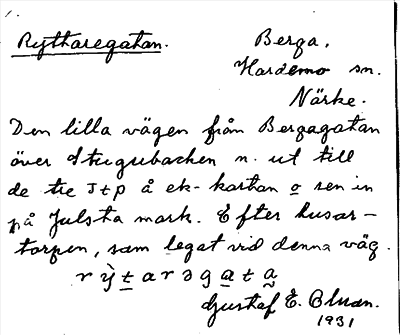 Ryttaregatan.
Berga,
Hardemo sn.
Närke.
Den lilla vägen från Bergagatan
över Stugubacken n. ut till
de tre Jtp å ek-kartan o sen in
på Julsta mark. Efter husar-
torpen, som legat vid denna väg.
r ỳ t a r ə g a t a
Gustaf E.
1931